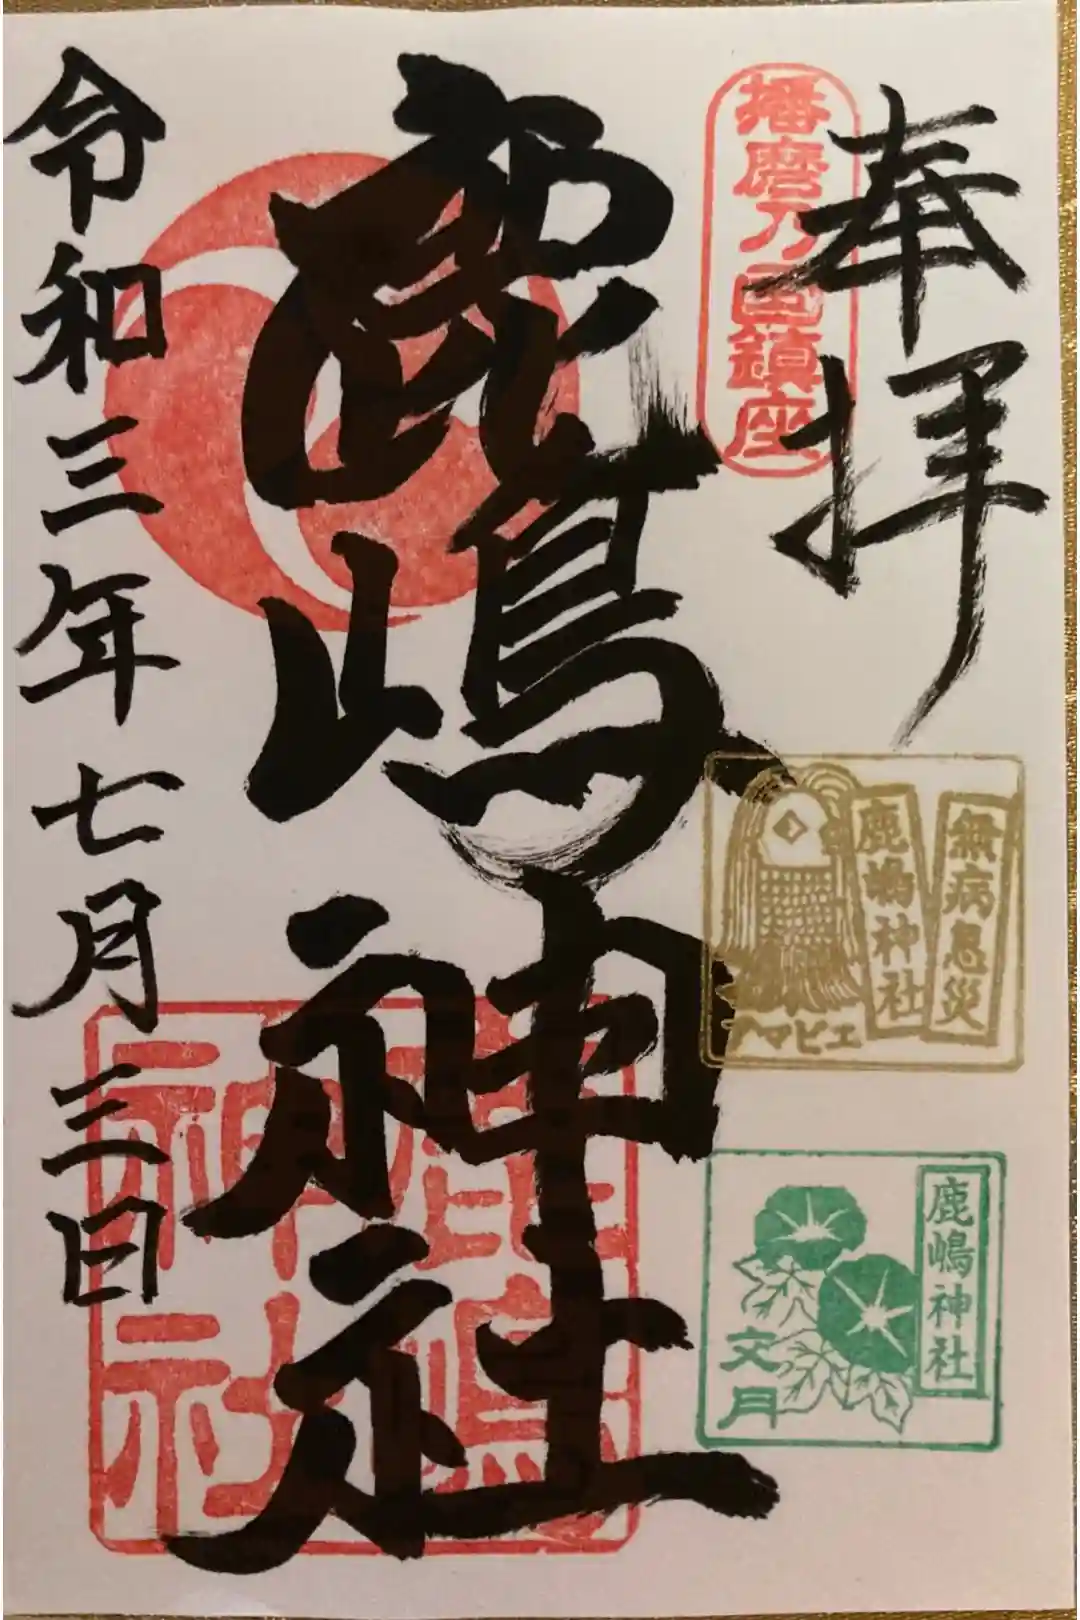 奉拝
播磨乃国鎮座
無病息災
鹿嶋神社
アマビエ
鹿嶋神社
文月
鹿嶋神社
鹿嶋
神社
令和三年七月三日